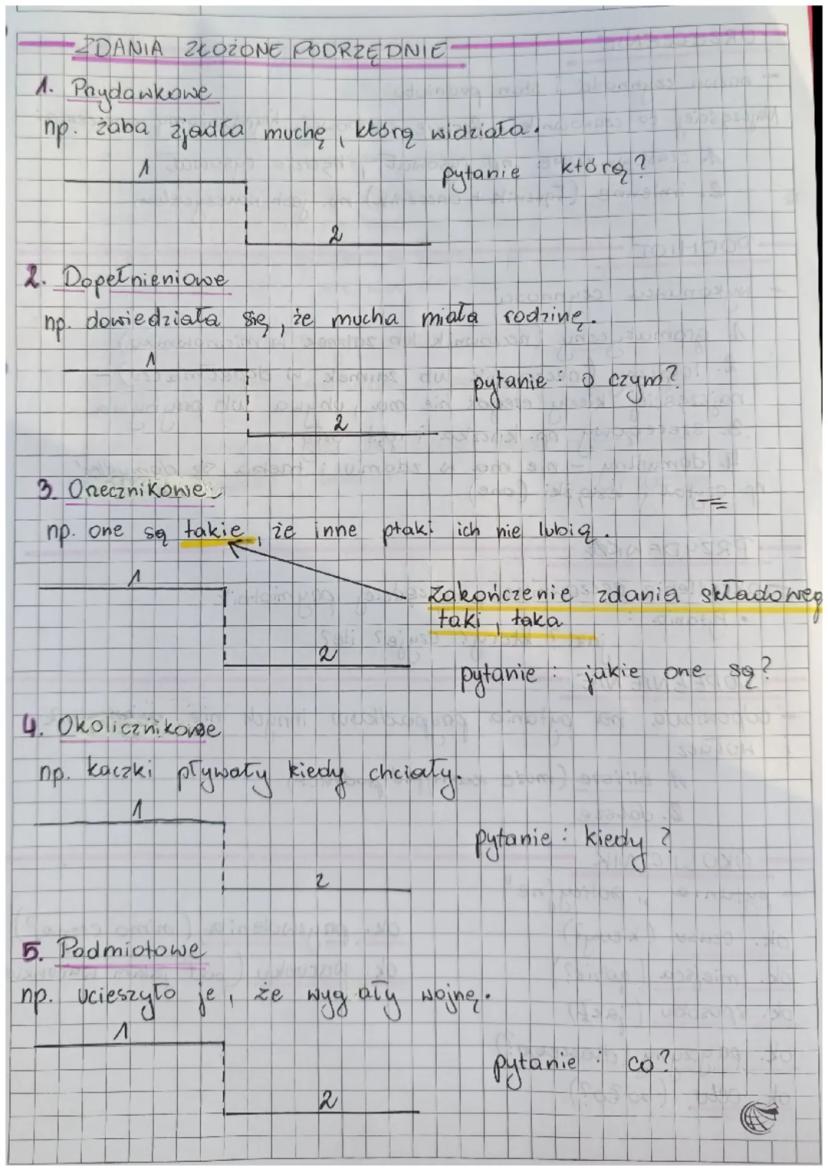 ZDANIA ZŁOŻONE PODRZĘDNIE
1. Przydawkowe
np. żaba zjadła muchę, którą widziała.
1
pytanie którą?
2
2. Dopełnieniowe
np. dowiedziała się, że mucha miała rodzinę.
1
pytanie: o czym?
2
3. Orzecznikowe:
np. one są takie, że inne ptaki ich nie lubią.
1
zakończenie zdania składoweg
taki, taka
2
pytanie: jakie one są?
4. Okolicznikowe
np. kaczki pływały kiedy chciały.
1
pytanie: kiedy?
2
5. Podmiotowe
np. ucieszyło je, że wygrały wojnę.
1
pytanie: co?
2